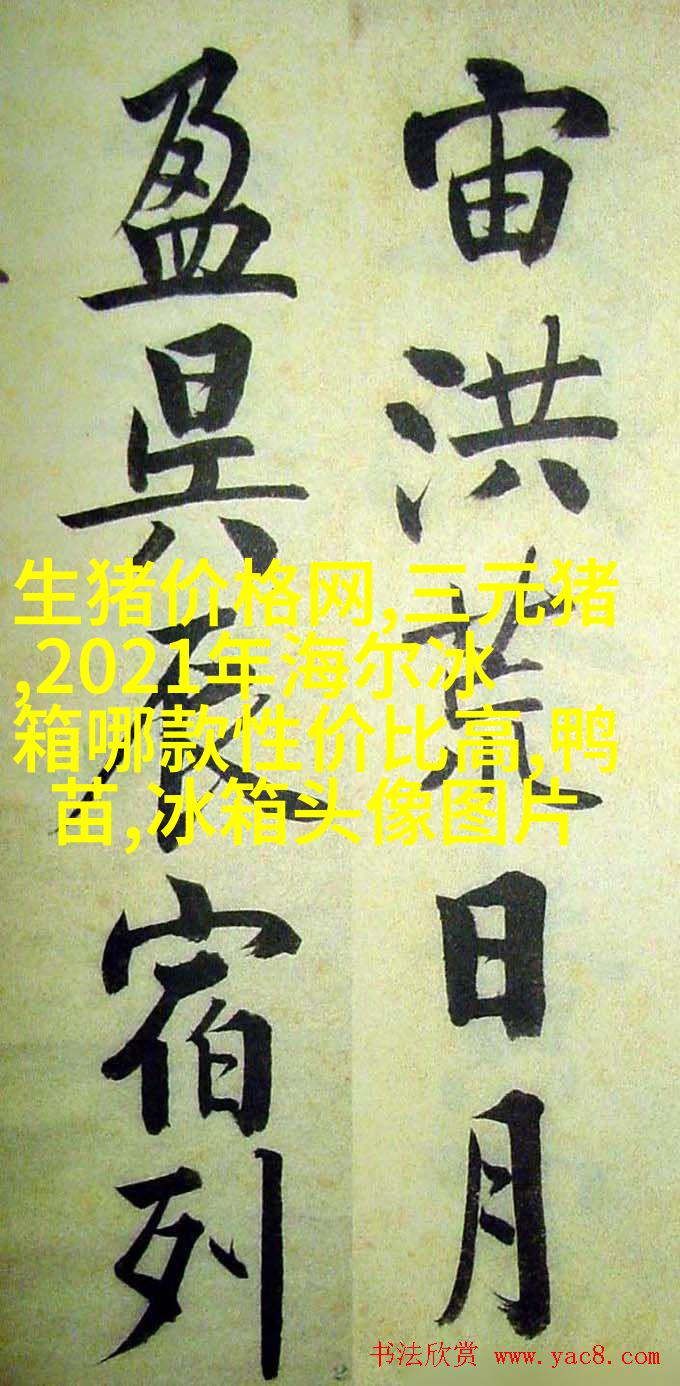 宙洪荒日月
盈昃辰宿列
生猪价格网,三元猪
,2021年海尔冰
箱哪款性价比高,鸭
苗,冰箱头像图片
书法欣赏 www.yac8.com